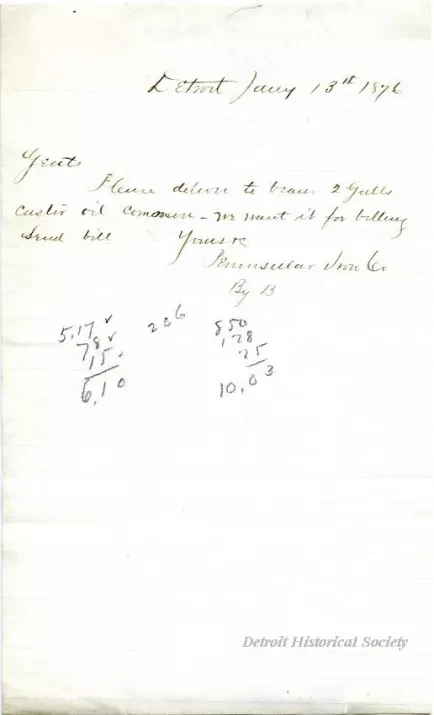 Detroit Jany 13th 1876
Gents
Please deliver to bearer 2 Galls
castor oil common - we want it for belting
Send bill Yours &c
Peninsular Iron Co
By B
5.17 ✓ 236 850
78 ✓ 1,28
15 ✓ 25
6,10 10,03
Detroit Historical Society